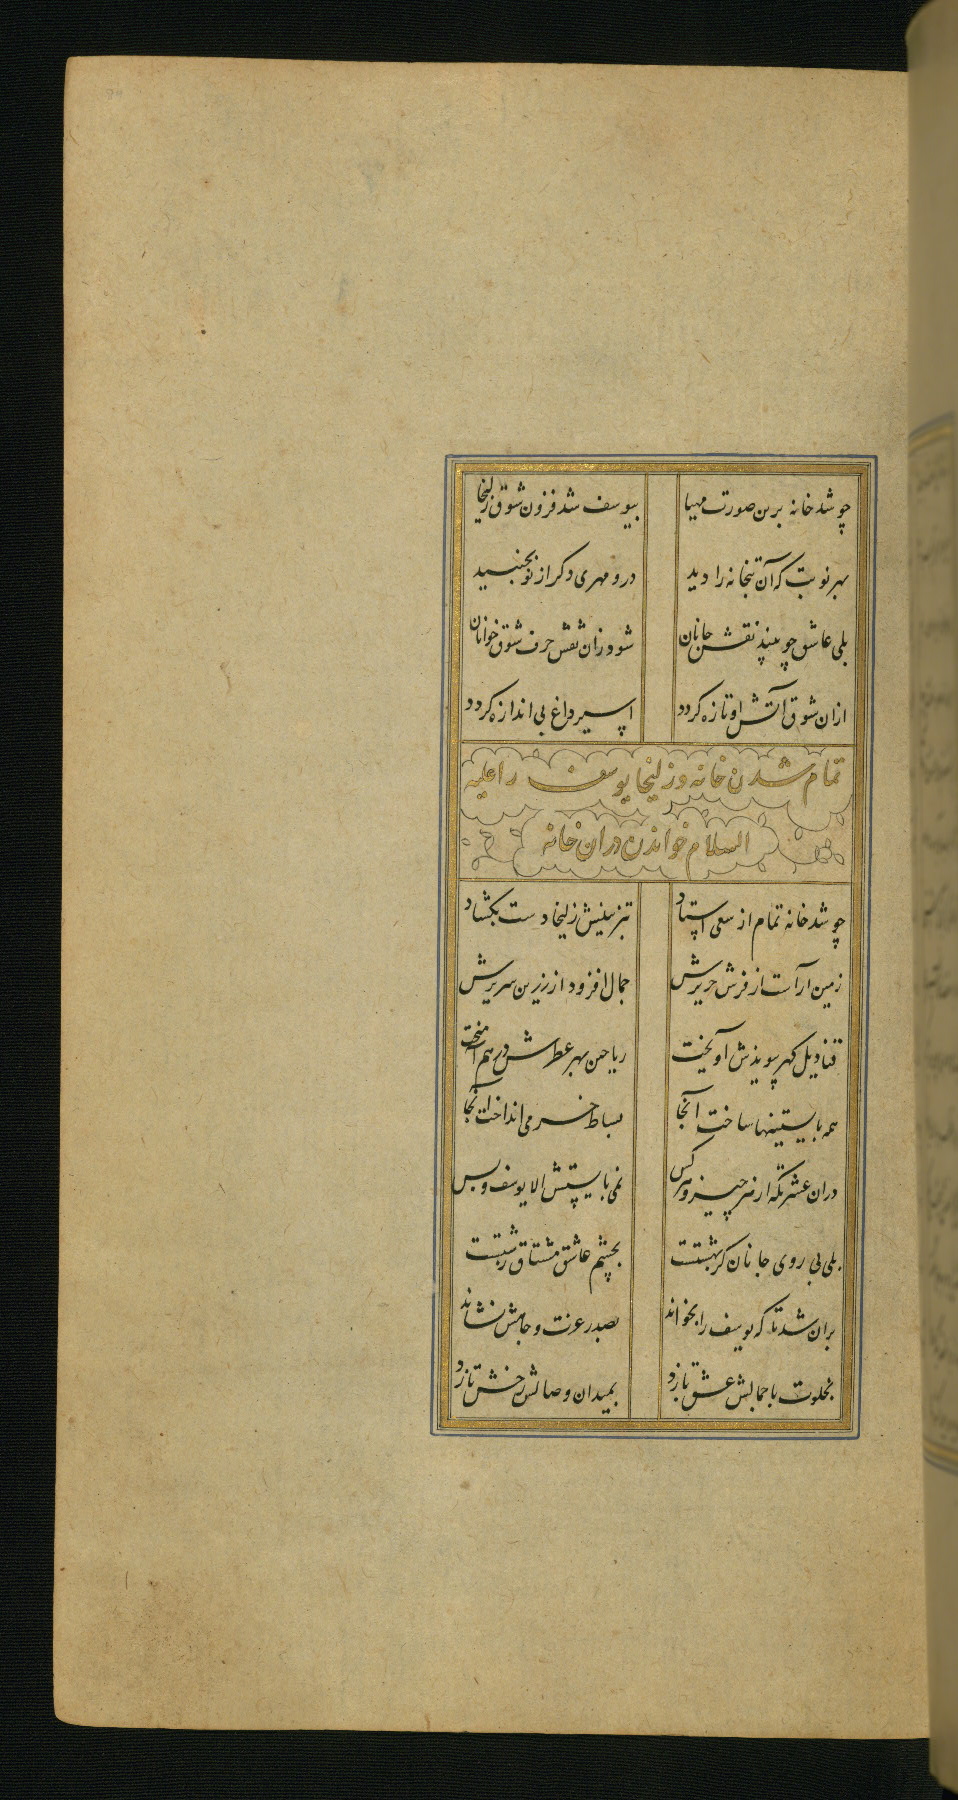 چو شد خانه برین صورت مهیا بیوسف شد فزون شوق زلیخا
بهر نوبت که آن بتخانه را دید درو مهری دکر از نو بجنبید
بلی عاشق چو بیند نقش جانان شود زان نقش حرف شوق خوانان
ازان شوق آتش او تازه کردد اسیر داغ بی اندازه کردد
تمام شدن خانه و زلیخا یوسف را علیه
السلام خواندن دران خانه
چو شد خانه تمام از سعی استاد تبزیینش زلیخا دست بکشاد
زمین آراست از فرش حریرش جمال افزود از زرین سریرش
قنادیل کهر پیوندش آویخت ریاحین بهر عطرش درهم آمیخت
همه بایستنیها ساخت آنجا بساط خرمی انداخت آنجا
دران عشرتکه از هر چیز و هر کس نمی بایستش الا یوسف و بس
بلی بی روی جانان کر بهشتست بچشم عاشق مشتاق زشتست
بران شد تا که یوسف را بخواند بصدر عزت و جاهش نشاند
بخلوت با جمالش عشق بازد بمیدان وصالش رخش تازد